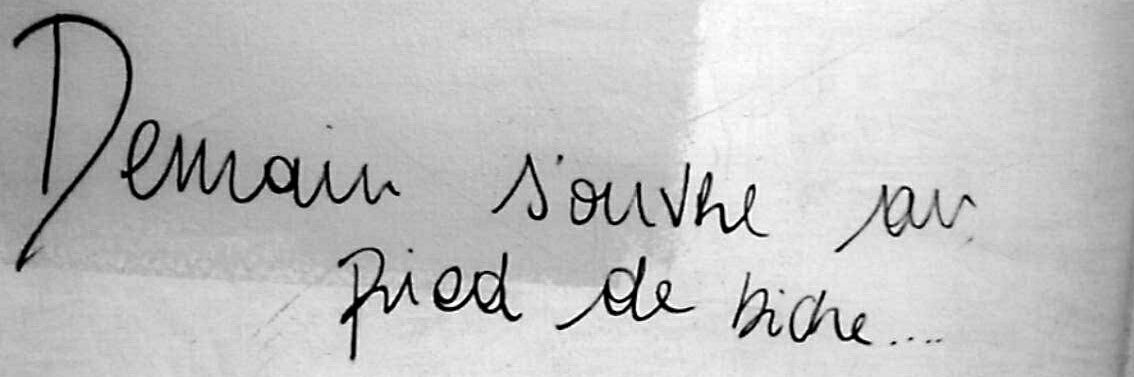 Demain s'ouvre au
pied de biche....